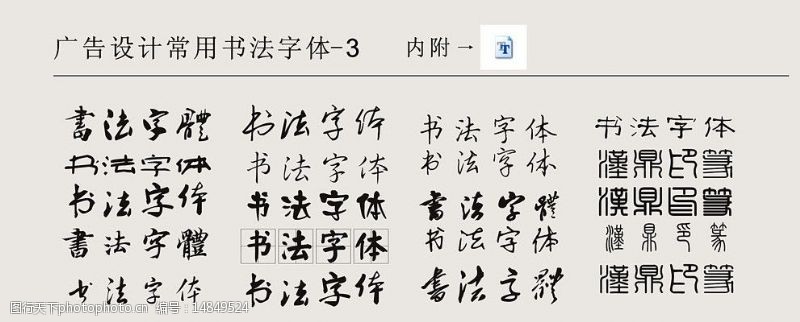 广告设计常用书法字体-3 内附→
書法字體
书法字体
书法字体
書法字體
书法字体
书法字体
书法字体
书法字体
书法字体
书法字体
书法字体
书法字体
書法字體
书法字体
書法字體
书法字体
漢鼎印篆
漢鼎印篆
漢鼎印篆
漢鼎印篆
图行天下photophoto.cn 编号:14849524